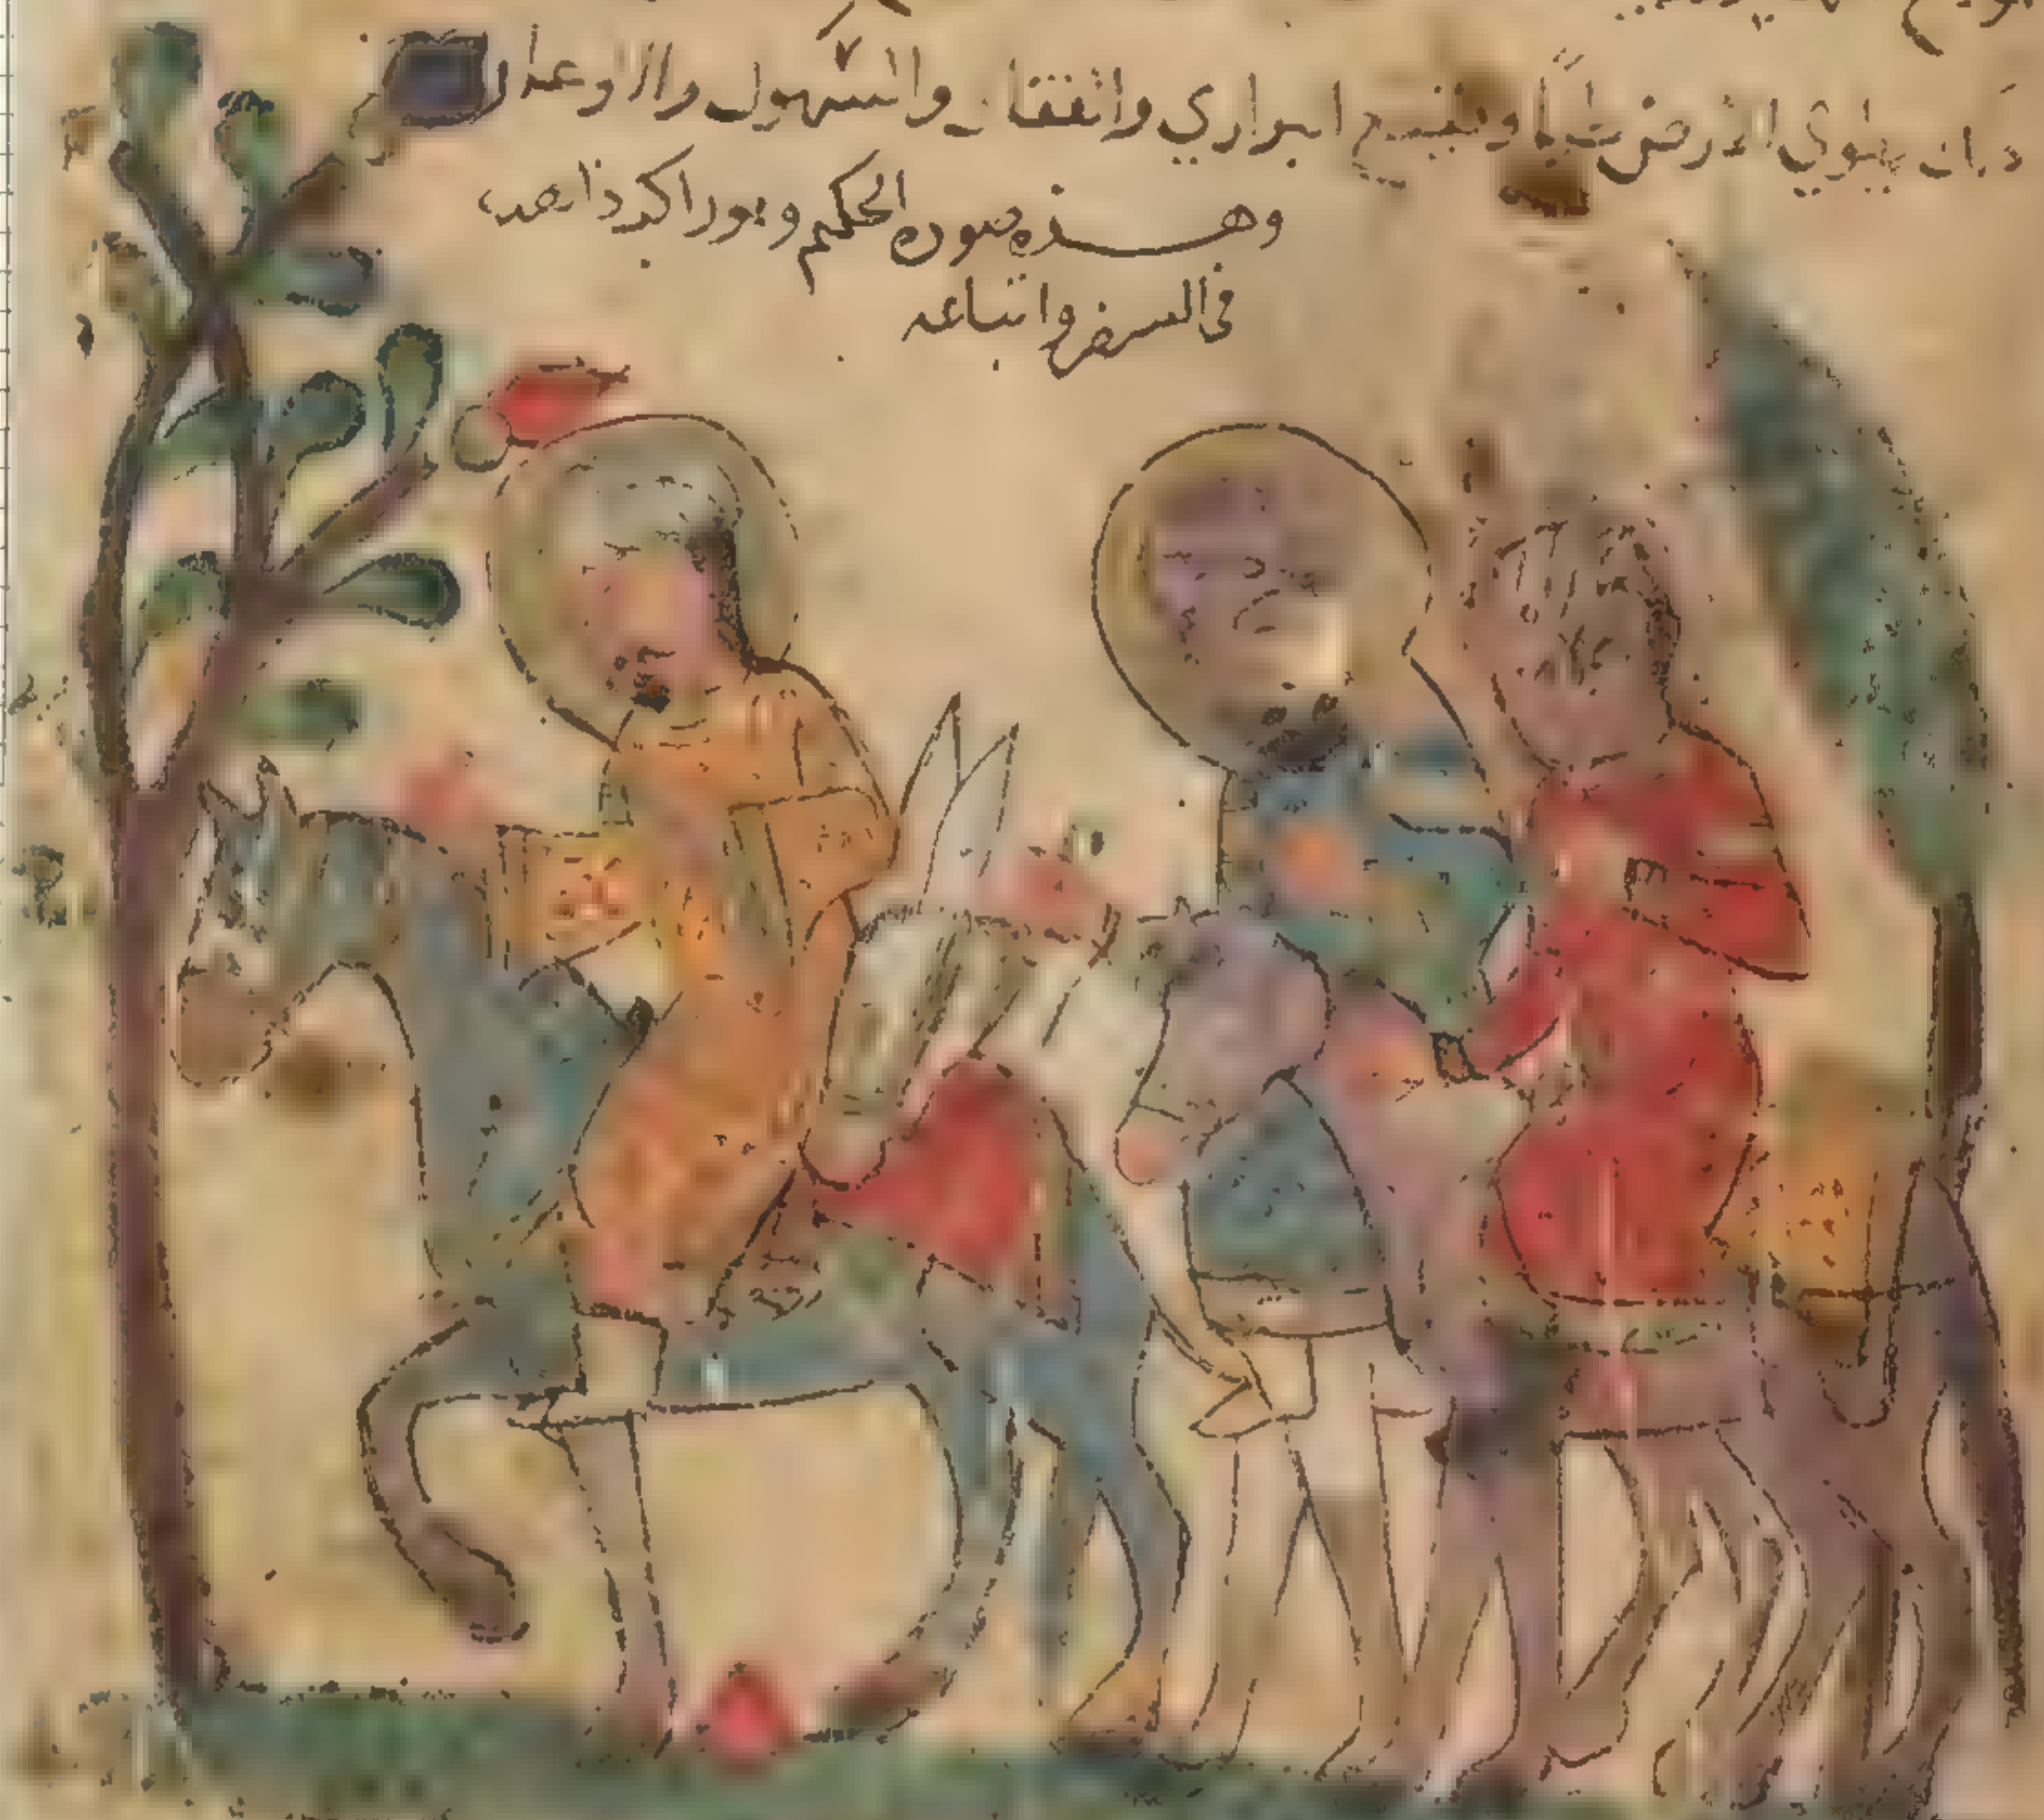 يطوي الأرض طيا و البراري والقفار والسهول والاوعار
وهذه صورة الحكيم وهو راكب ذاهب
في السفر واتباعه